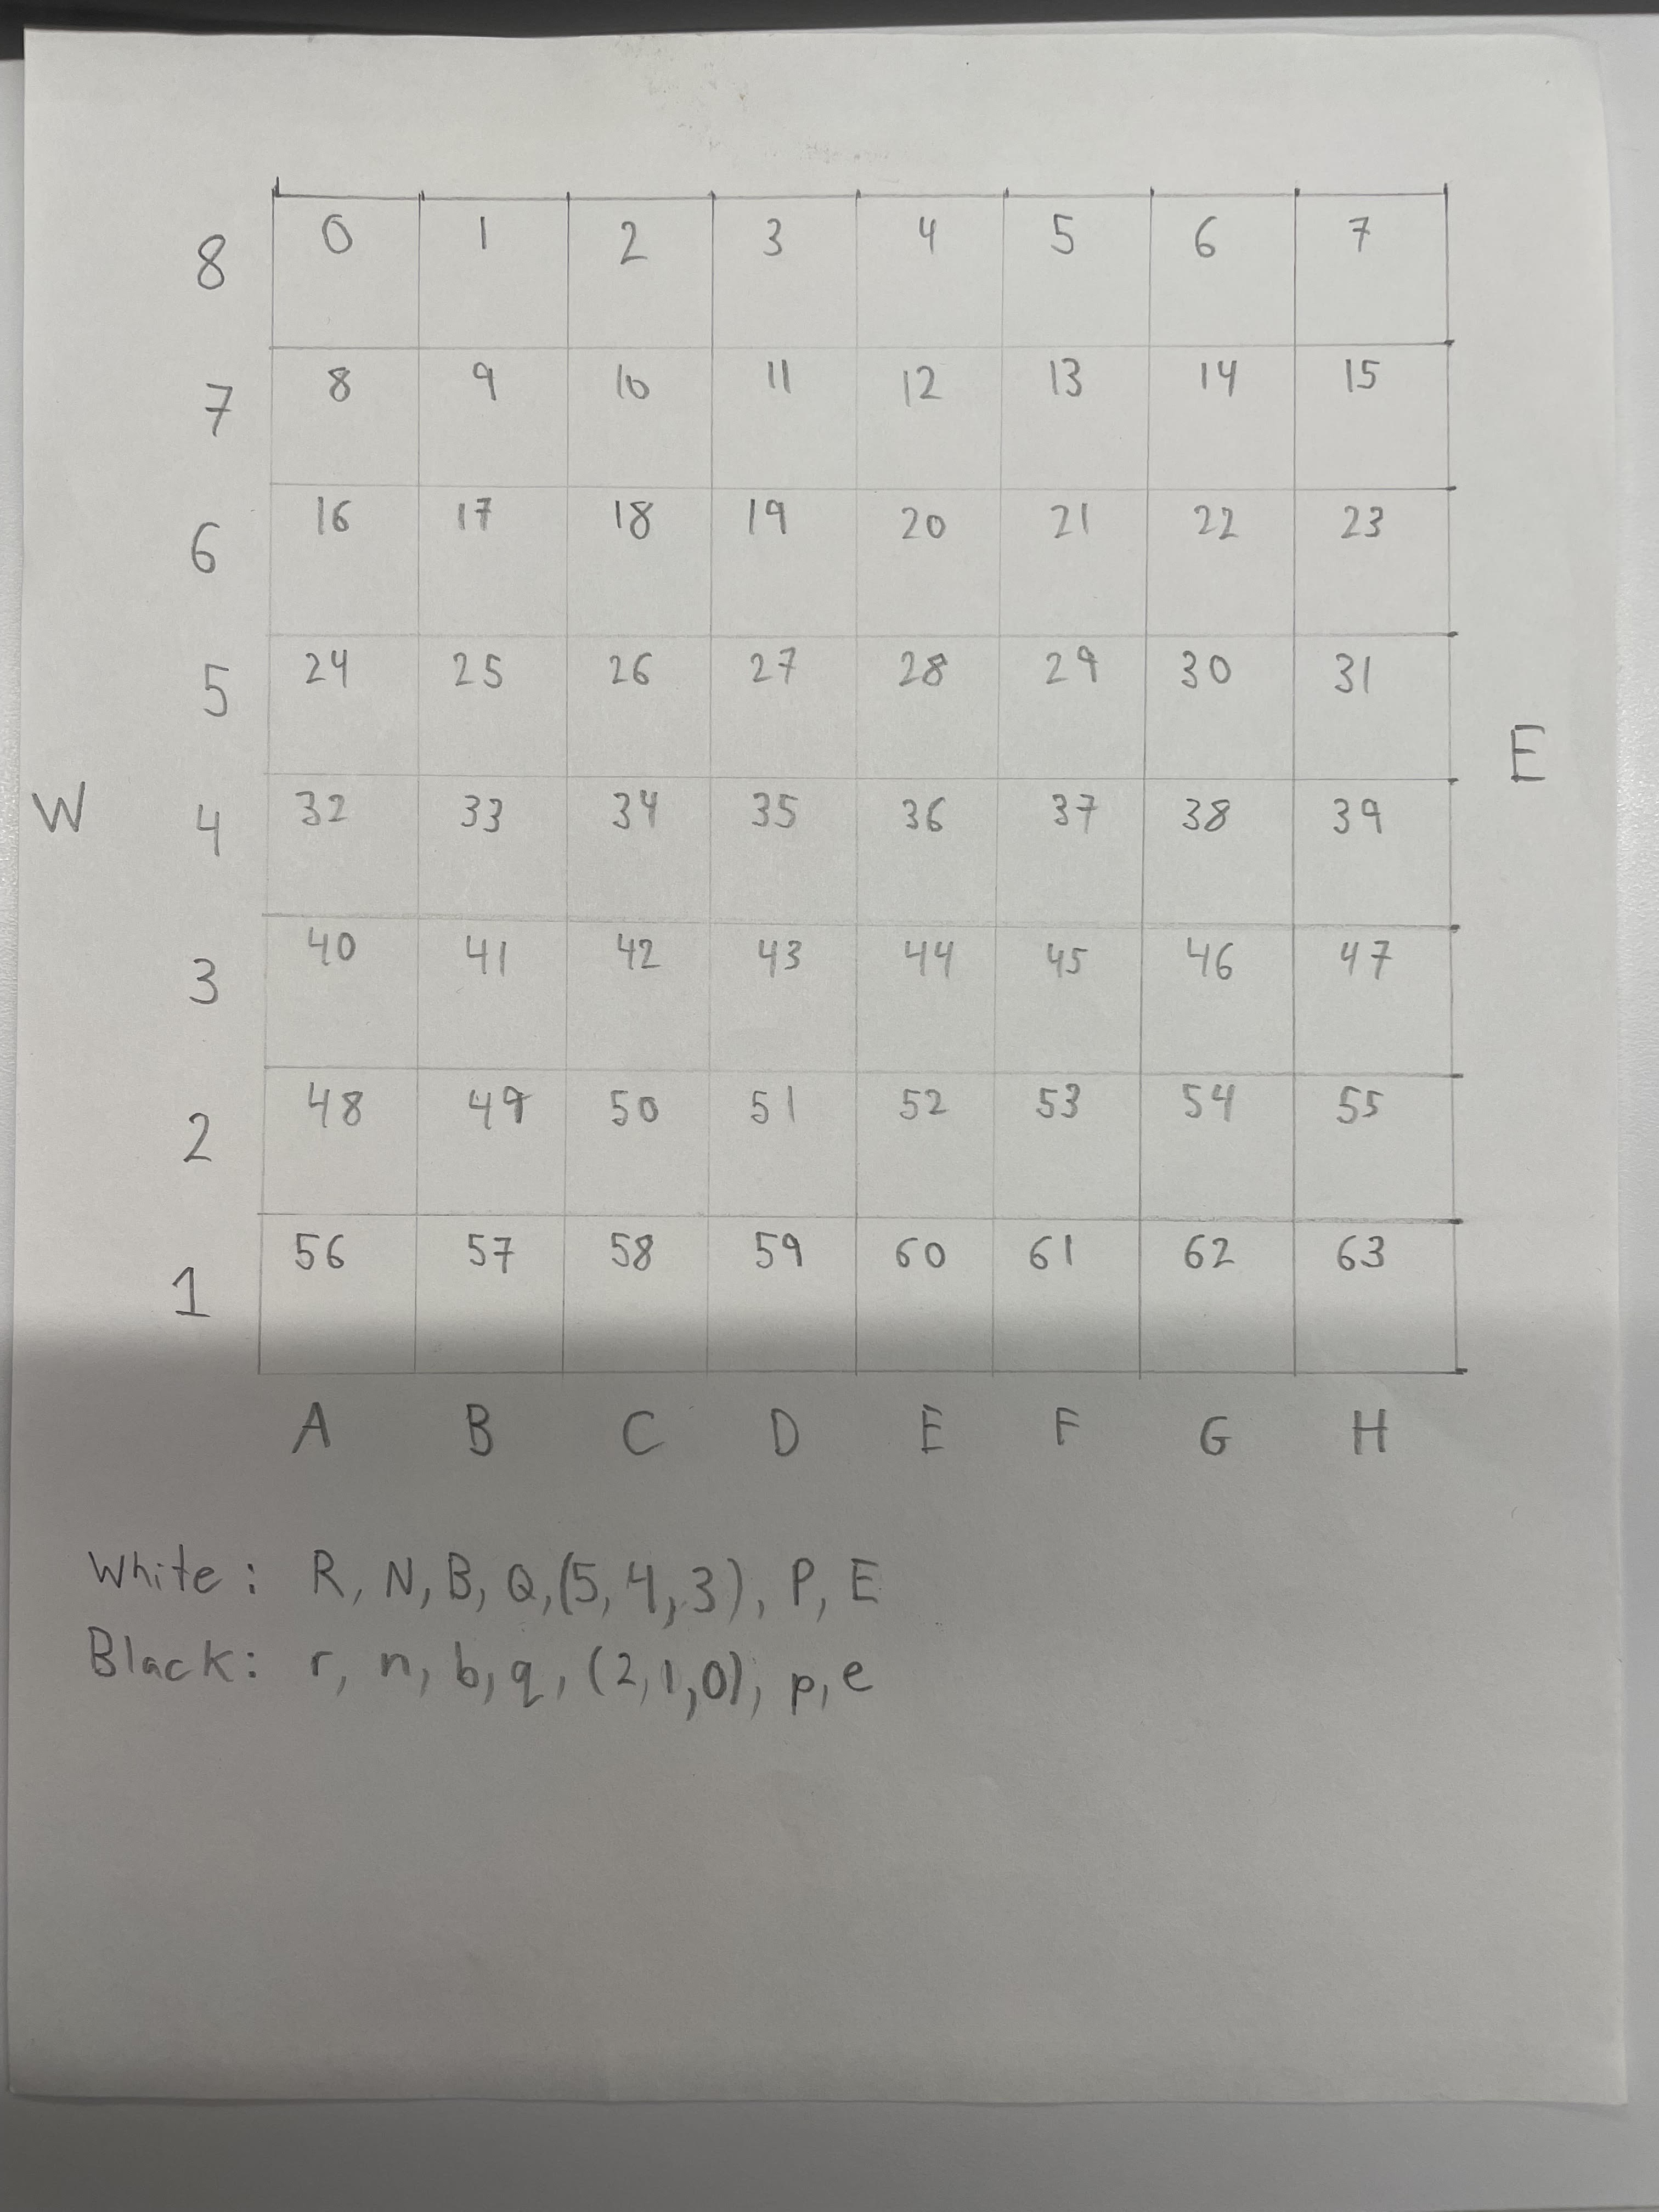 8 0 1 2 3 4 5 6 7
7 8 9 10 11 12 13 14 15
6 16 17 18 19 20 21 22 23
5 24 25 26 27 28 29 30 31
W E
4 32 33 34 35 36 37 38 39
3 40 41 42 43 44 45 46 47
2 48 49 50 51 52 53 54 55
1 56 57 58 59 60 61 62 63
A B C D E F G H
White: R, N, B, Q, (5, 4, 3), P, E
Black: r, n, b, q, (2, 1, 0), p, e